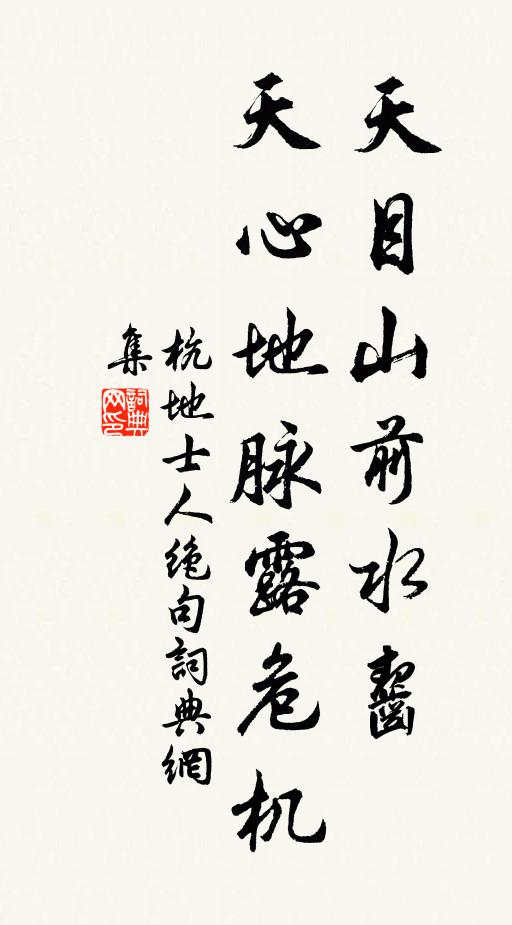 天目山前水齧
天心地脉露危机
杭地士人绝句詞典網
集
詞典
网印